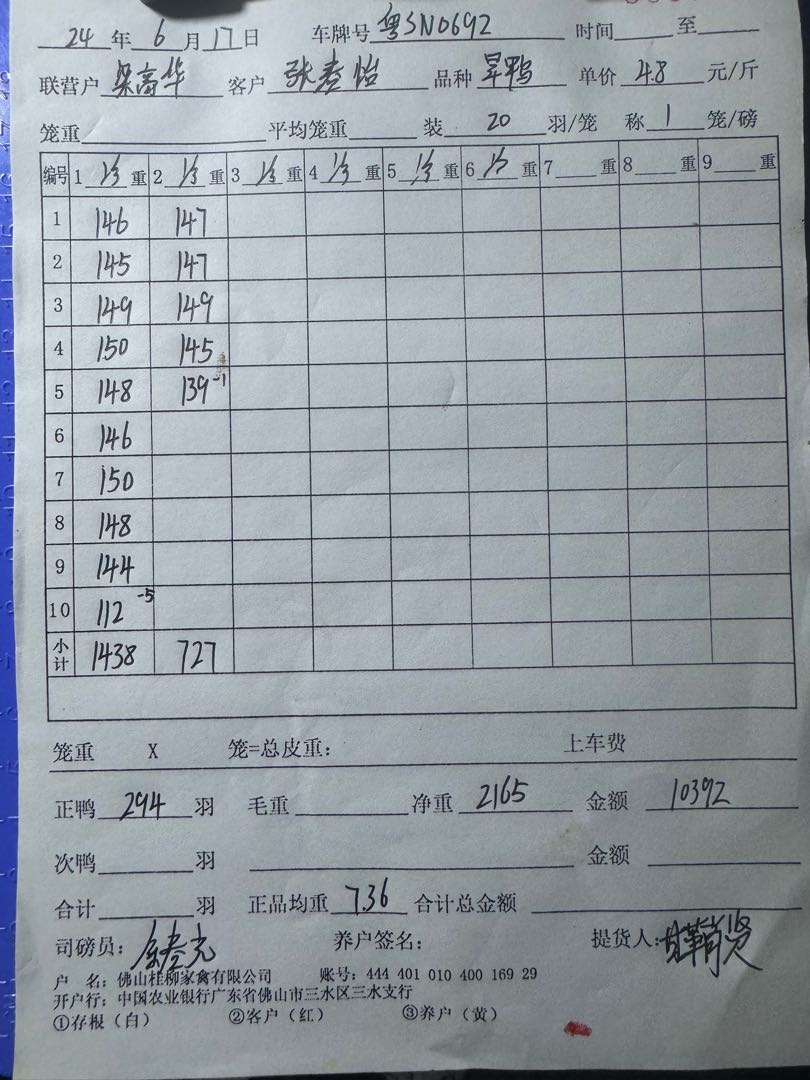 24 年 6 月 17 日 车牌号 粤SN0692 时间 至
联营户 梁高华 客户 张春怡 品种 旱鸭 单价 4.8 元/斤
笼重 平均笼重 装 20 羽/笼 称 1 笼/磅
编号 1 重 2 重 3 重 4 重 5 重 6 重 7 重 8 重 9 重
1 146 147
2 145 147
3 149 149
4 150 145
5 148 139 -1
6 146
7 150
8 148
9 144
10 112 -5
小计 1438 727
笼重 X 笼=总皮重: 上车费
正鸭 294 羽 毛重 净重 2165 金额 10392
次鸭 羽 金额
合计 羽 正品均重 7.36 合计总金额
司磅员: 养户签名: 提货人:
户 名: 佛山桂柳家禽有限公司 账号: 444 401 010 400 169 29
开户行: 中国农业银行广东省佛山市三水区三水支行
①存根(白) ②客户(红) ③养户(黄)